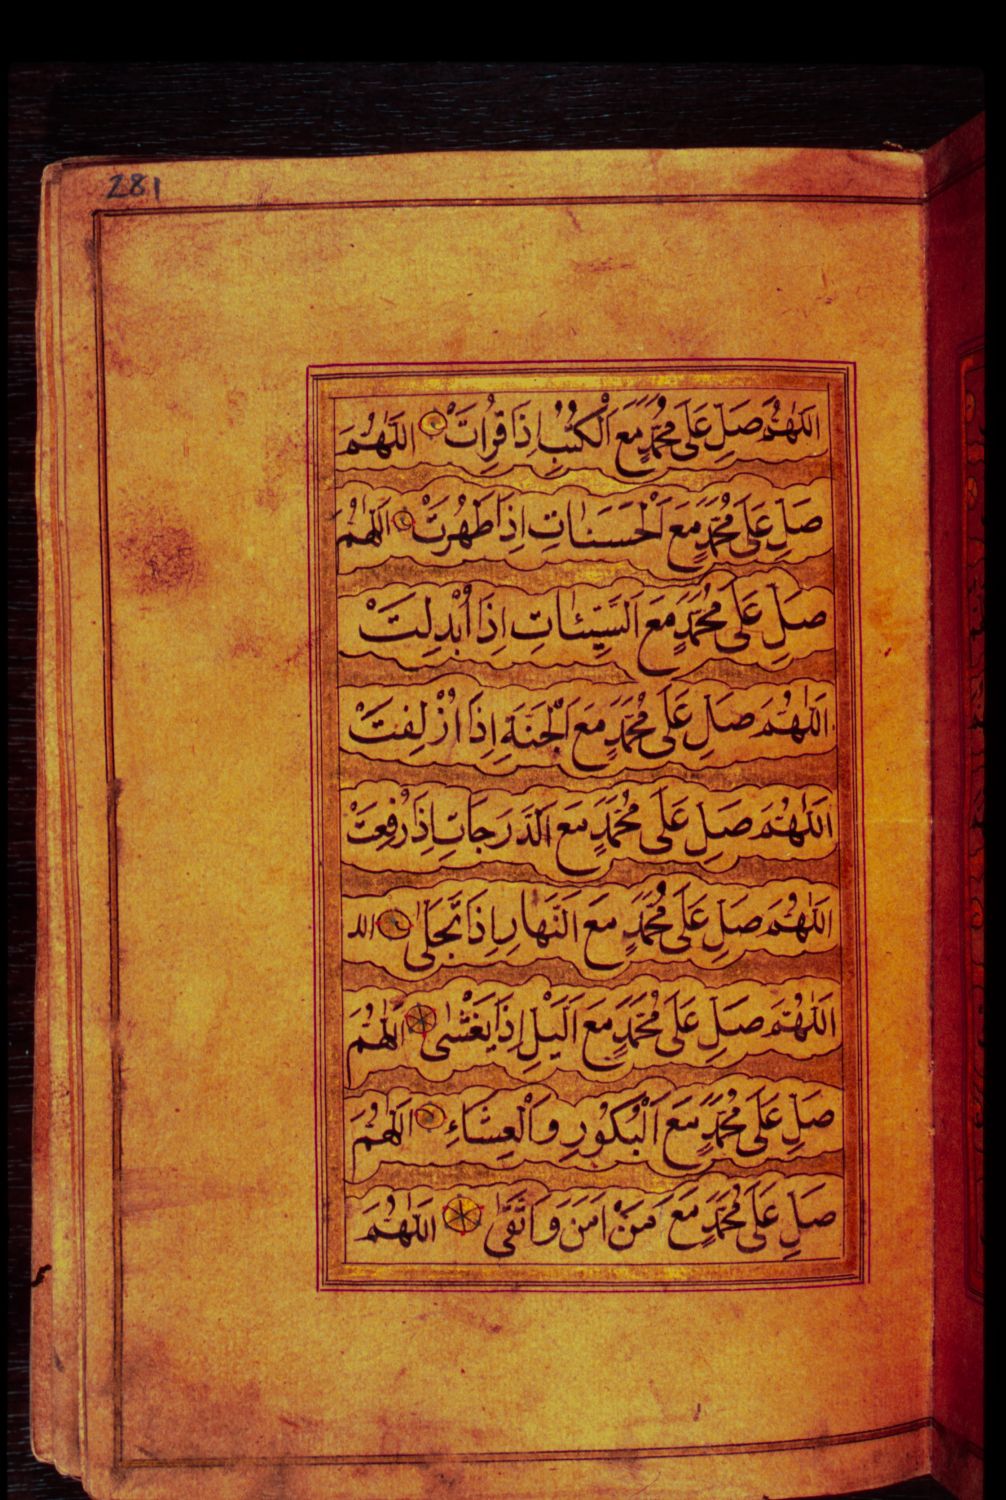 281
اَللّٰهُمَّ صَلِّ عَلَى مُحَمَّدٍ مَعَ الْكُتُبِ اِذَا قُرِاَتْ اَللّٰهُمَّ
صَلِّ عَلَى مُحَمَّدٍ مَعَ الْحَسَنَاتِ اِذَا طَهُرَتْ اَللّٰهُمَّ
صَلِّ عَلَى مُحَمَّدٍ مَعَ السَّيِّئَاتِ اِذَا اُبْدِلَتْ
اَللّٰهُمَّ صَلِّ عَلَى مُحَمَّدٍ مَعَ الْجَنَّةِ اِذَا اُزْلِفَتْ
اَللّٰهُمَّ صَلِّ عَلَى مُحَمَّدٍ مَعَ الدَّرَجَاتِ اِذَا رُفِعَتْ
اَللّٰهُمَّ صَلِّ عَلَى مُحَمَّدٍ مَعَ النَّهَارِ اِذَا تَجَلّٰى الل
اَللّٰهُمَّ صَلِّ عَلَى مُحَمَّدٍ مَعَ الَّيْلِ اِذَا يَغْشٰى اَللّٰهُمَّ
صَلِّ عَلَى مُحَمَّدٍ مَعَ الْبُكُوْرِ وَالْعِشَاءِ اَللّٰهُمَّ
صَلِّ عَلَى مُحَمَّدٍ مَعَ مَنْ اٰمَنَ وَاتَّقٰى اَللّٰهُمَّ